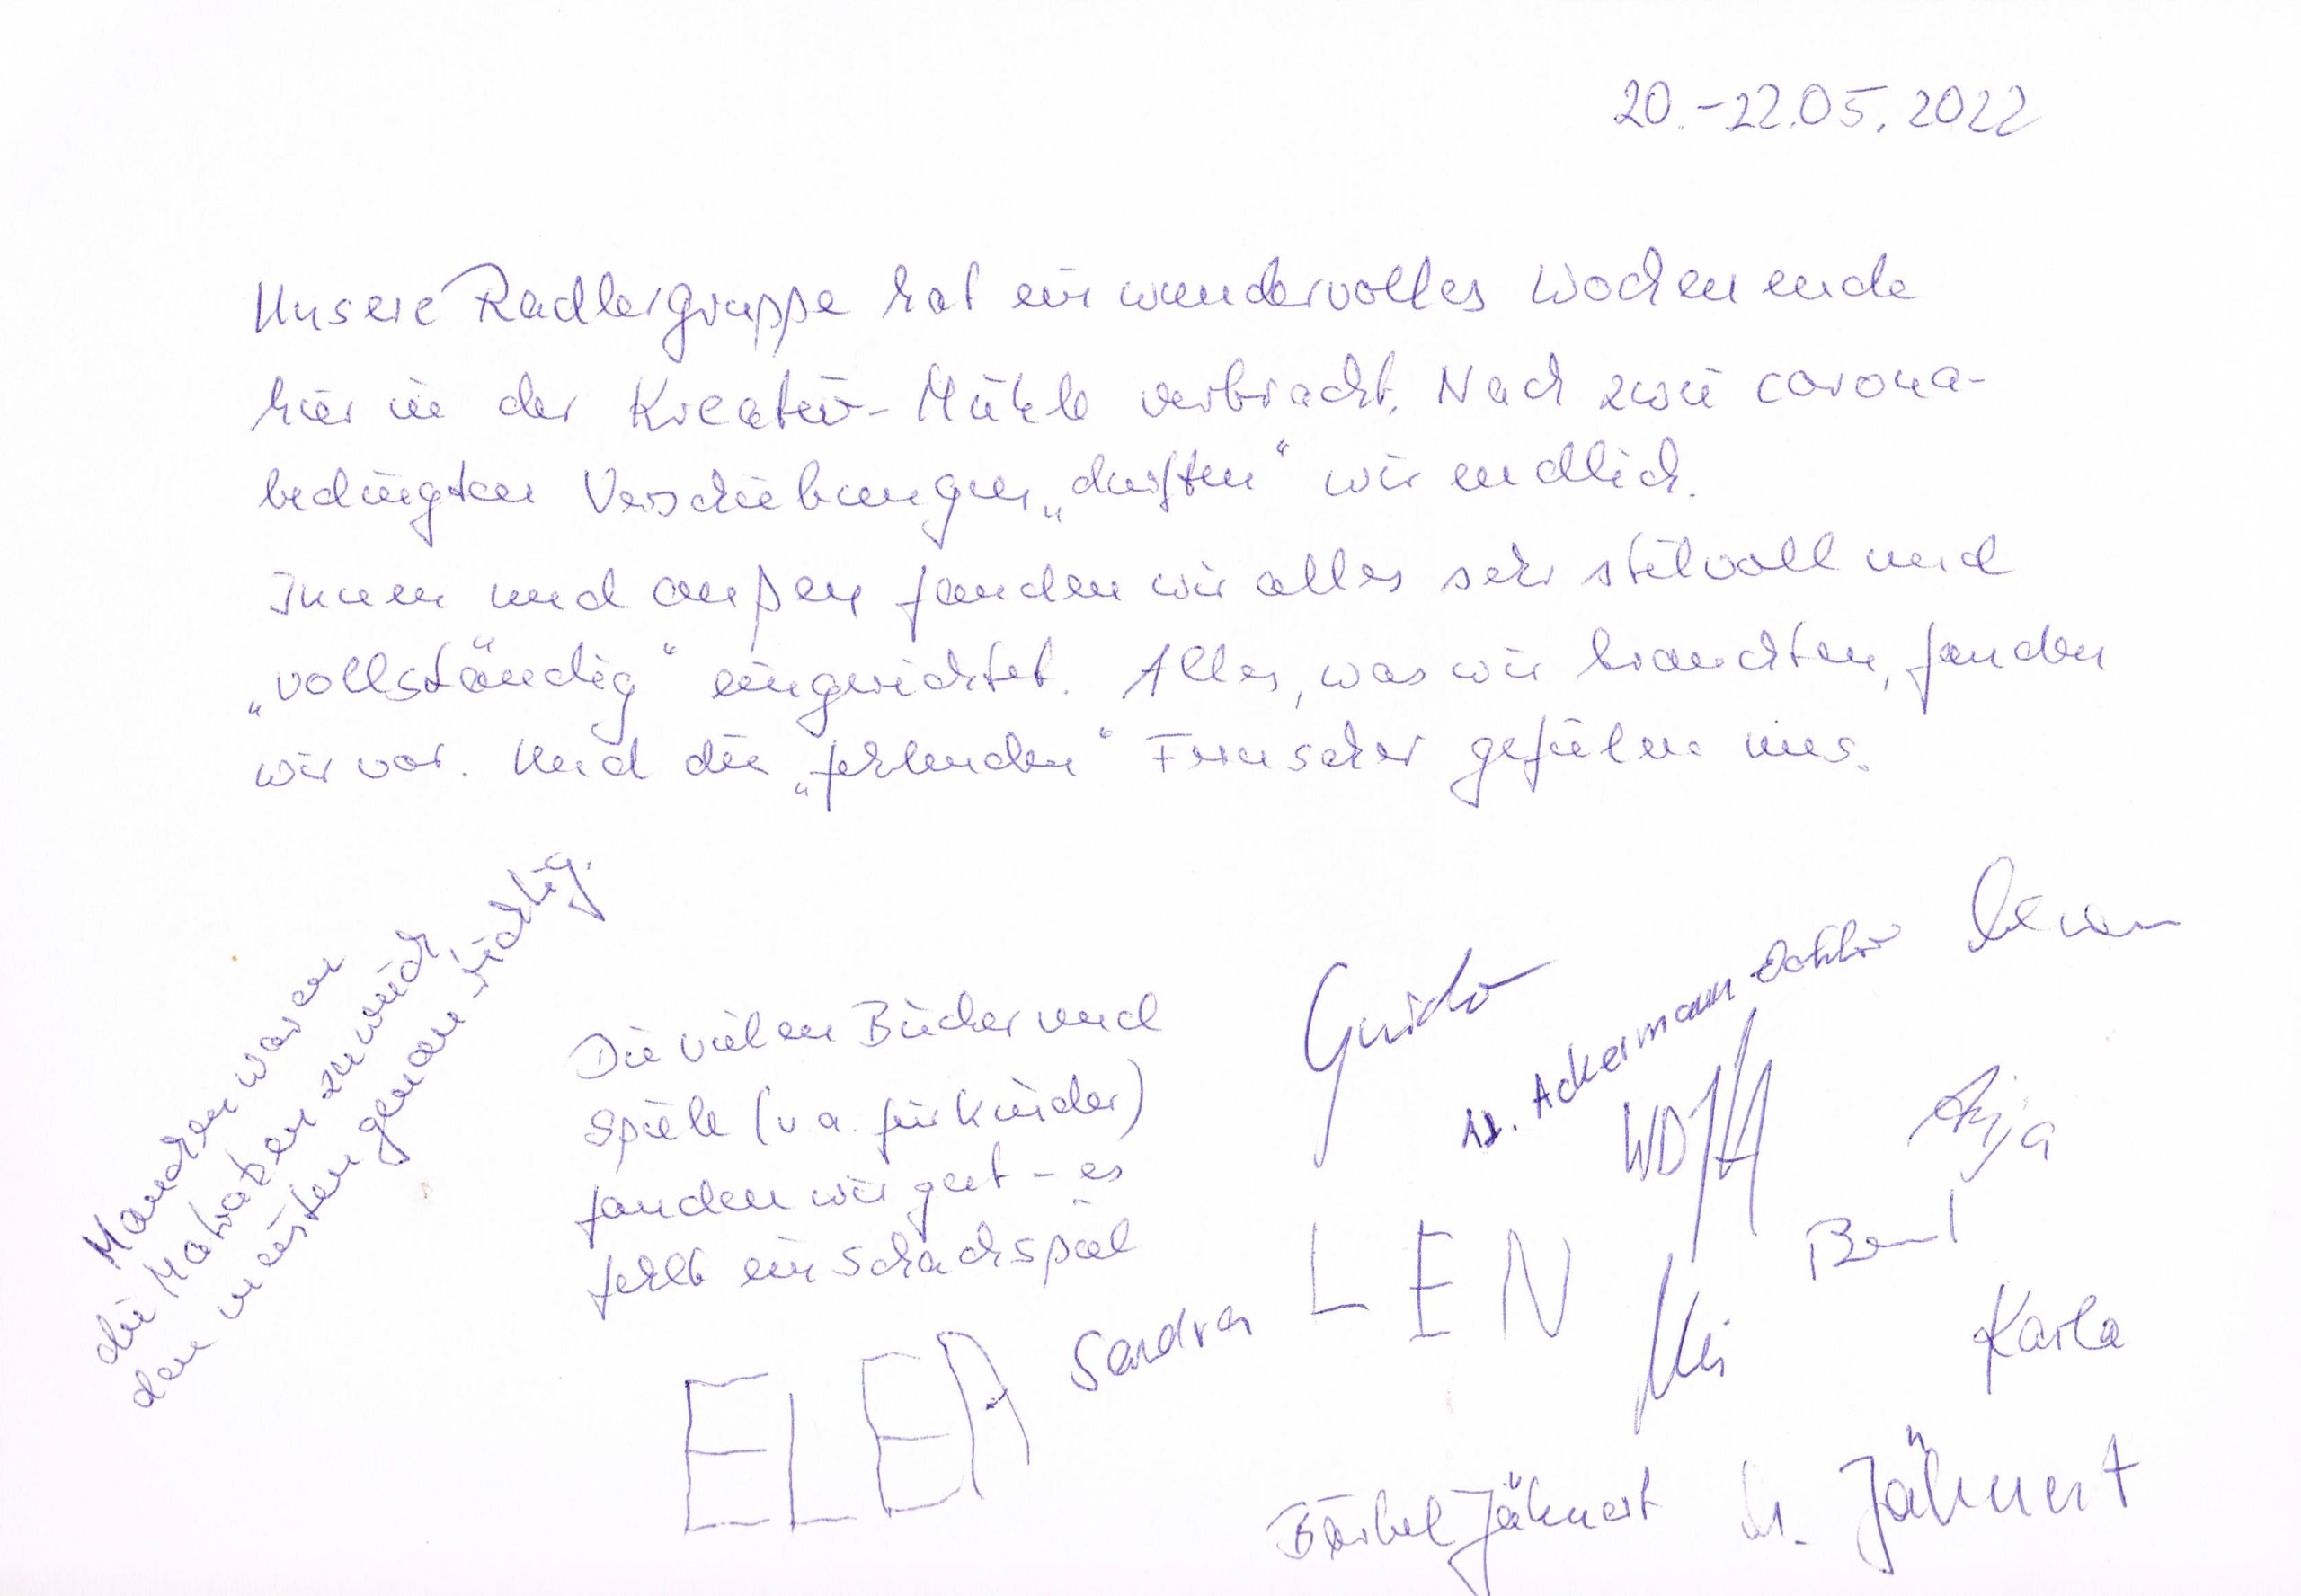 20.-22.05.2022
Unsere Radlergruppe hat ein wundervolles Wochenende
hier in der Kreativ-Mühle verbracht. Nach zwei corona-
bedingten Verschiebungen „durften“ wir endlich.
Innen und außen fanden wir alles sehr stilvoll und
„vollständig“ eingerichtet. Alles, was wir brauchten, fanden
wir vor. Und die „fehlenden“ Fernseher gefielen uns.
Manchen waren
die Matratzen zu weich
den meisten genau richtig.
Die vielen Bücher und
Spiele (v a. für Kinder)
fanden wir gut - es
fehlt ein Schachspiel
Guido
Ackermann
Anja
LEN
Sandra
ELEA
Karla
Bärbel Jähnert
Jähnert